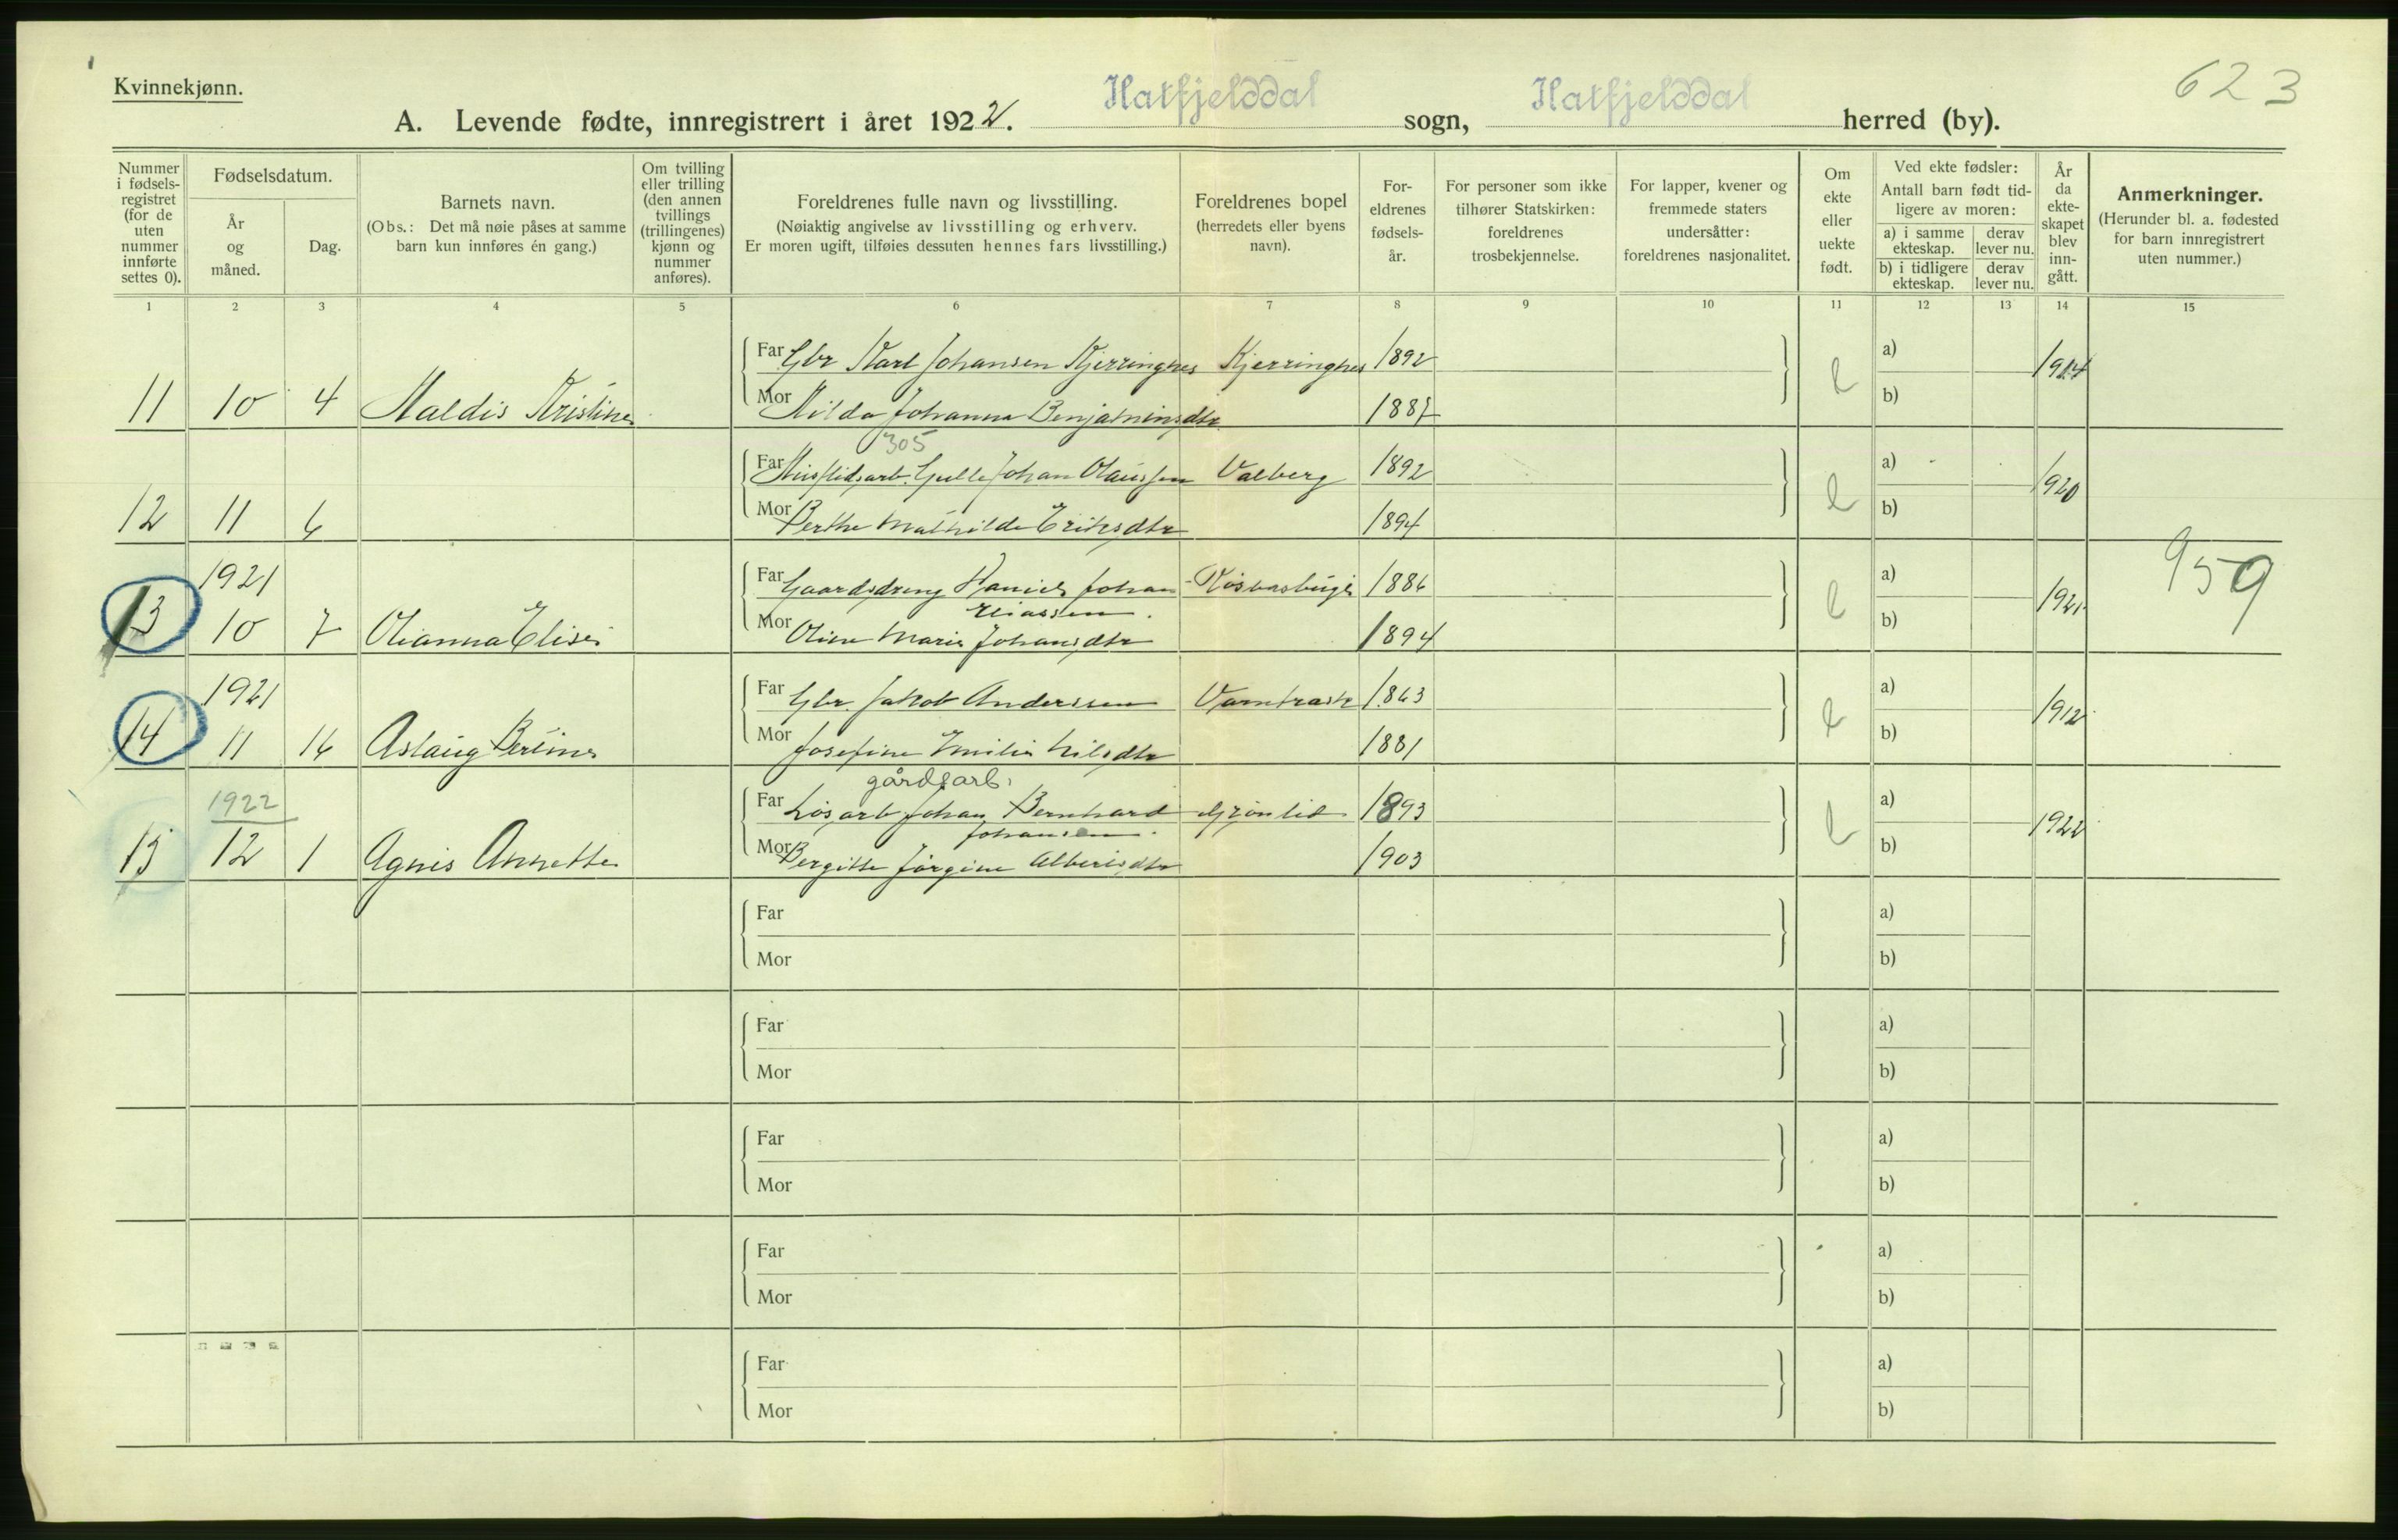 623
Kvinnekjønn.
A. Levende fødte, innregistrert i året 1922. Hatfjelddal sogn, Hatfjelddal herred (by).
Nummer i fødselsregistret (for de uten nummer innførte settes 0).
Fødselsdatum.
År og måned.
Dag.
Barnets navn.
(Obs.: Det må nøie påses at samme barn kun innføres én gang.)
Om tvilling eller trilling (den annen tvillings (trillingenes) kjønn og nummer anføres).
Foreldrenes fulle navn og livsstilling.
(Nøiaktig angivelse av livsstilling og erhverv.
Er moren ugift, tilføies dessuten hennes fars livsstilling.)
Foreldrenes bopel
(herredets eller byens navn).
Foreldrenes fødselsår.
For personer som ikke tilhører Statskirken: foreldrenes trosbekjennelse.
For lapper, kvener og fremmede staters undersåtter: foreldrenes nasjonalitet.
Om ekte eller uekte født.
Ved ekte fødsler:
Antall barn født tidligere av moren:
a) i samme ekteskap.
derav lever nu.
b) i tidligere ekteskap.
derav lever nu.
År da ekteskapet blev inngått.
Anmerkninger.
(Herunder bl. a. fødested for barn innregistrert uten nummer.)
1 2 3 4 5 6 7 8 9 10 11 12 13 14 15
Far Gbr Karl Johansen Kjerringnes Kjerringnes 1892 a) 1914
11 10 4 Haldis Kristine Mor Hilda Johanna Benjaminsdtr 1887 e b)
305
Far Husflidsarb. Johan Olaussen Valberg 1892 a) 1920
12 11 6 Mor Berthe Mathilde Eriksdtr 1894 e b)
1921 Far Gaardsdreng Daniel Johan 1886 a) 1921 959
Eliassen
13 10 7 Olianna Elise Mor Oline Marie Johansdtr 1894 e b)
1921 Far Gbr. Jakob Anderssen Varntræsk 1863 a) 1912
14 11 16 Aslaug Berline Mor Josefine Emilie Nilsdtr 1881 e b)
gårdsarb.
1922 Far Løsarb Johan Bernhard Grønlid 1893 a) 1922
Johansen
15 12 1 Agnis Annette Mor Bergitte Jørgine Albertsdtr 1903 e b)
Far a)
Mor b)
Far a)
Mor b)
Far a)
Mor b)
Far a)
Mor b)
Far a)
Mor b)